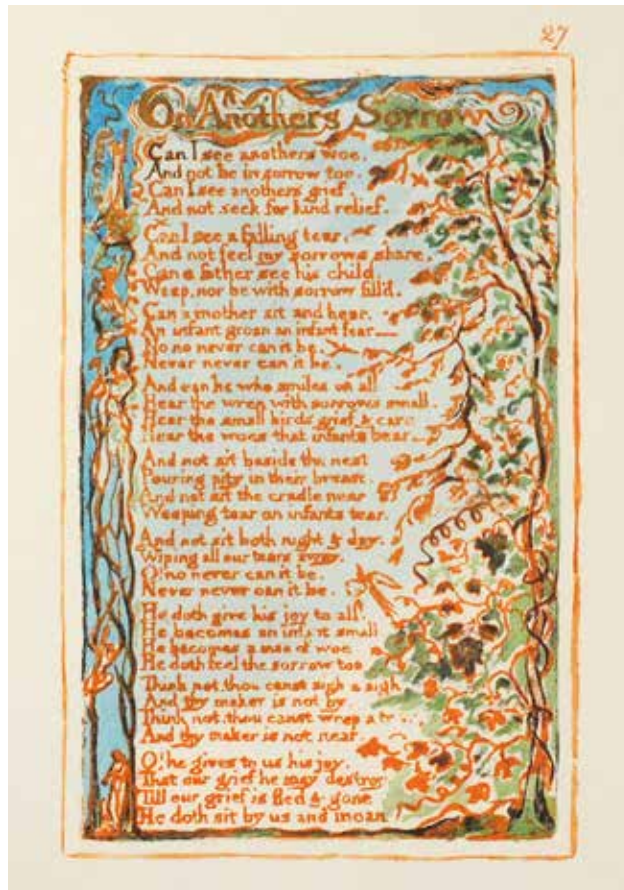 27
On Anothers Sorrow
Can I see anothers woe,
And not be in sorrow too.
Can I see anothers grief,
And not seek for kind relief.
Can I see a falling tear,
And not feel my sorrows share,
Can a father see his child,
Weep, nor be with sorrow fill'd.
Can a mother sit and hear,
An infant groan an infant fear—
No no never can it be.
Never never can it be.
And can he who smiles on all
Hear the wren with sorrows small,
Hear the small birds grief & care
Hear the woes that infants bear—
And not sit beside the nest
Pouring pity in their breast,
And not sit the cradle near
Weeping tear on infants tear.
And not sit both night & day,
Wiping all our tears away.
O! no never can it be.
Never never can it be.
He doth give his joy to all.
He becomes an infant small
He becomes a man of woe
He doth feel the sorrow too
Think not, thou canst sigh a sigh,
And thy maker is not by
Think not, thou canst weep a tear,
And thy maker is not near.
O! he gives to us his joy,
That our grief he may destroy
Till our grief is fled & gone
He doth sit by us and moan